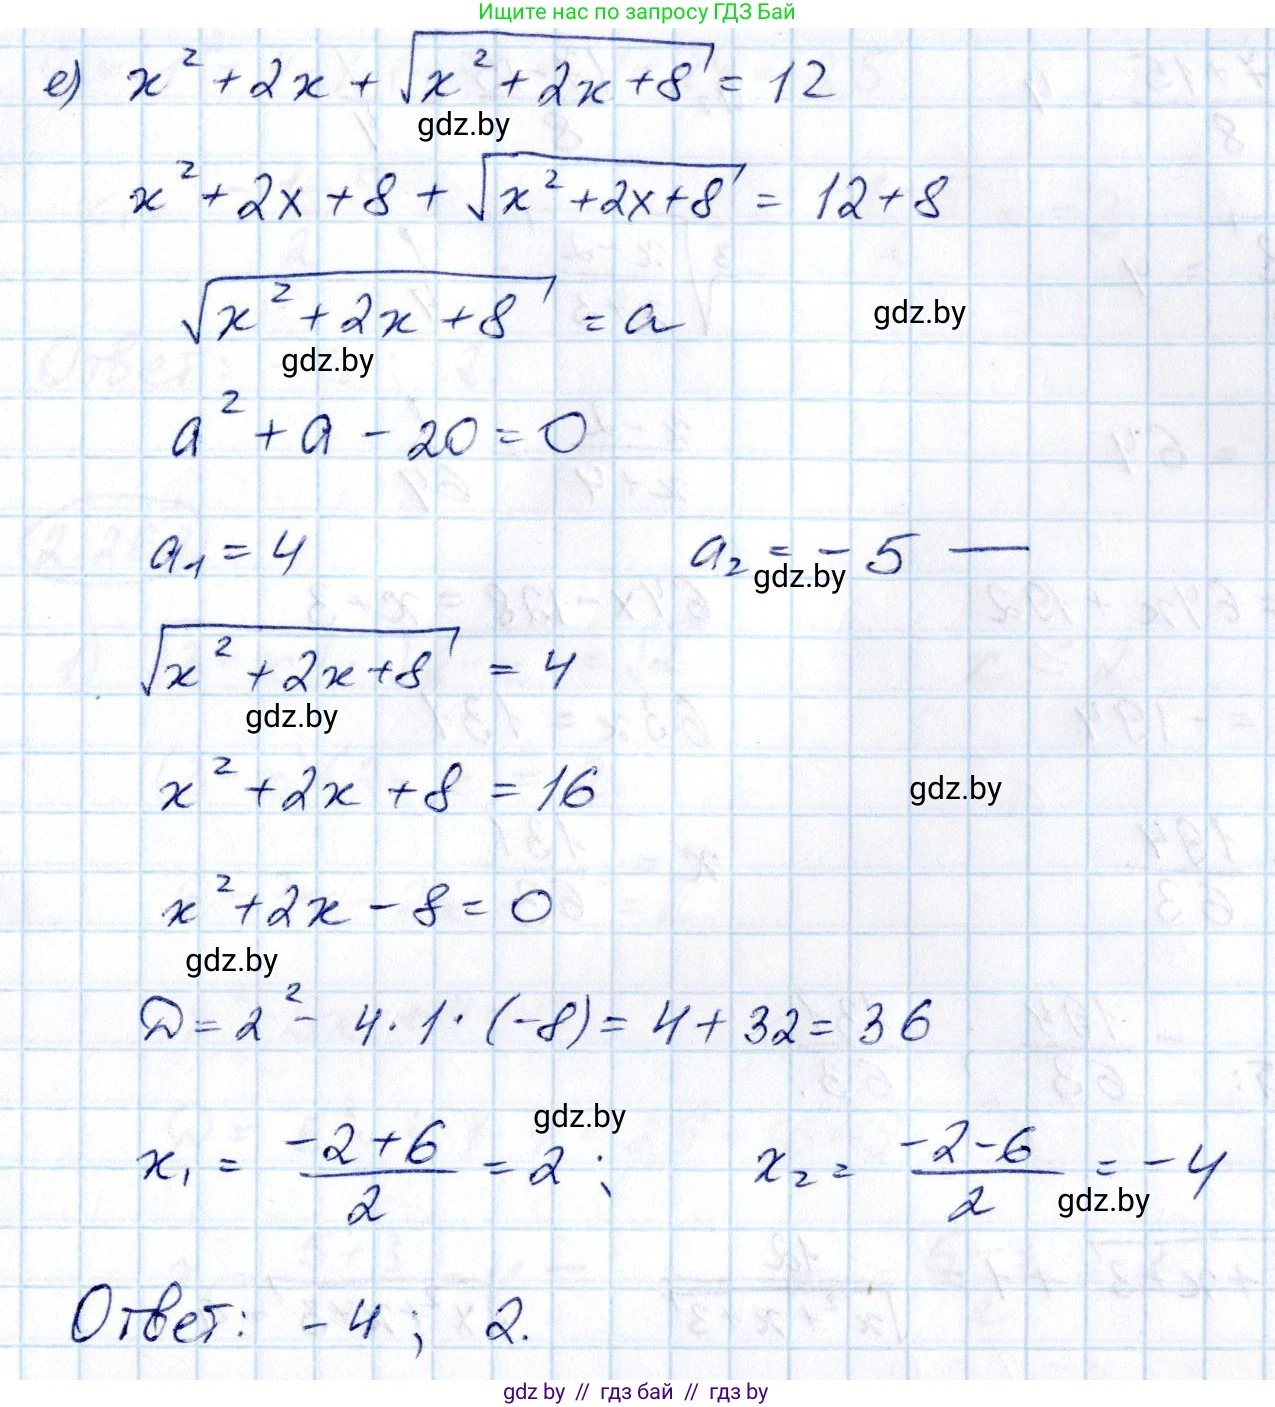 Ищите нас по запросу ГДЗ Бай
е) x² + 2x + √(x² + 2x + 8) = 12
gdz.by
x² + 2x + 8 + √(x² + 2x + 8) = 12 + 8
√(x² + 2x + 8) = a
gdz.by
gdz.by
a² + a - 20 = 0
a₁ = 4 a₂ = - 5 —
gdz.by
√(x² + 2x + 8) = 4
gdz.by
x² + 2x + 8 = 16
gdz.by
x² + 2x - 8 = 0
gdz.by
D = 2² - 4 · 1 · (-8) = 4 + 32 = 36
gdz.by
x₁ = (-2 + 6)/2 = 2 ; x₂ = (-2 - 6)/2 = -4
gdz.by
Ответ: -4 ; 2.
gdz by // гдз бай // гдз by